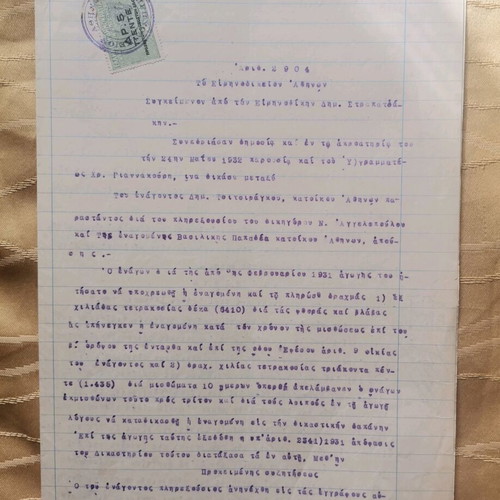 ΔΡ. 5
ΠΕΝΤΕ
Ἀριθ. 2904
Τὸ Εἰρηνοδικεῖον Ἀθηνῶν
Συγκείμενον ἀπὸ τὸν Εἰρηνοδίκην Δημ.
κην.-
Συνεδριάσαν δημοσίᾳ καὶ ἐν τῷ ἀκροατηρίῳ του
τὴν Μαΐου 1932 παρουσίᾳ καὶ τοῦ Ὑ)γραμματέ
ως Χρ. Γιαννακούρη, ἵνα δικάσῃ μεταξὺ
Τοῦ ἐνάγοντος Δημ. Τσιτσιράγκου, κατοίκου Ἀθηνῶν πα-
ραστάντος διὰ τοῦ πληρεξουσίου του δικηγόρου Ν. Ἀγγελοπούλου
καὶ Τῆς ἐναγομένης Βασιλικῆς Παπαδέα κατοίκου Ἀθηνῶν, ἀπού-
σης.-
Ὁ ἐνάγων διὰ τῆς ἀπὸ Φεβρουαρίου 1931 ἀγωγῆς του ἐ-
ζήτησε νὰ ὑποχρεωθῇ ἡ ἐναγομένη καὶ τῷ πληρώσῃ δραχμὰς 1) ἓξ
χιλιάδας τετρακοσίας δέκα (6410) διὰ τὰς φθορὰς καὶ βλάβας
ἃς ἐπήνεγκεν ἡ ἐναγομένη κατὰ τὸν χρόνον τῆς μισθώσεως ἐπὶ τοῦ
β' ὀρόφου τῆς ἐνταῦθα καὶ ἐπὶ τῆς ὁδοῦ ἀριθ. 9 οἰκίας
τοῦ ἐνάγοντος καὶ 2) δραχ. χιλίας τετρακοσίας τριάκοντα πέν-
τε (1.435) διὰ μισθώματα 10 ἡμερῶν ὁ ἐνάγων
ἐκμισθώσῃ τοῦτο πρὸς τρίτον καὶ διὰ τοὺς λοιποὺς ἐν τῇ ἀγωγῇ
λόγους νὰ καταδικασθῇ ἡ ἐναγομένη εἰς τὴν δικαστικὴν δαπάνην
Ἐπὶ τῆς ἀγωγῆς ταύτης ἐξεδόθη ἡ ὑπ' ἀριθ. 2341)1931 ἀπόφασις
τοῦ Δικαστηρίου τούτου διατάξασα τὰ ἐν αὐτῇ, Μεθ' ἣν
Προκειμένης συζητήσεως
Ὁ τοῦ ἐνάγοντος πληρεξούσιος ἀνηνέχθη εἰς τὰς ἐγγράφους